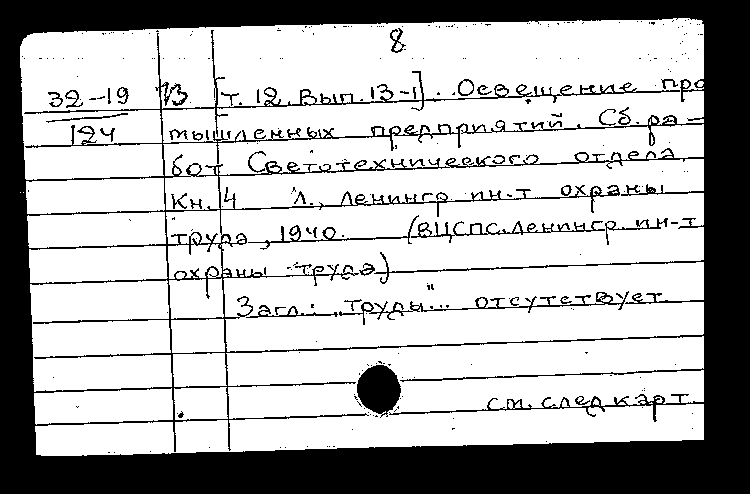 8
32-19 [т. 12. Вып. 13-1]. Освещение про
124 мышленных предприятий. Сб. ра-
бот Светотехнического отдела.
Кн. 4 Л., Ленингр. ин-т охраны
труда, 1940. (ВЦСПС. Ленингр. ин-т
охраны труда)
Загл.: „Труды"... отсутствует.
см. след карт.